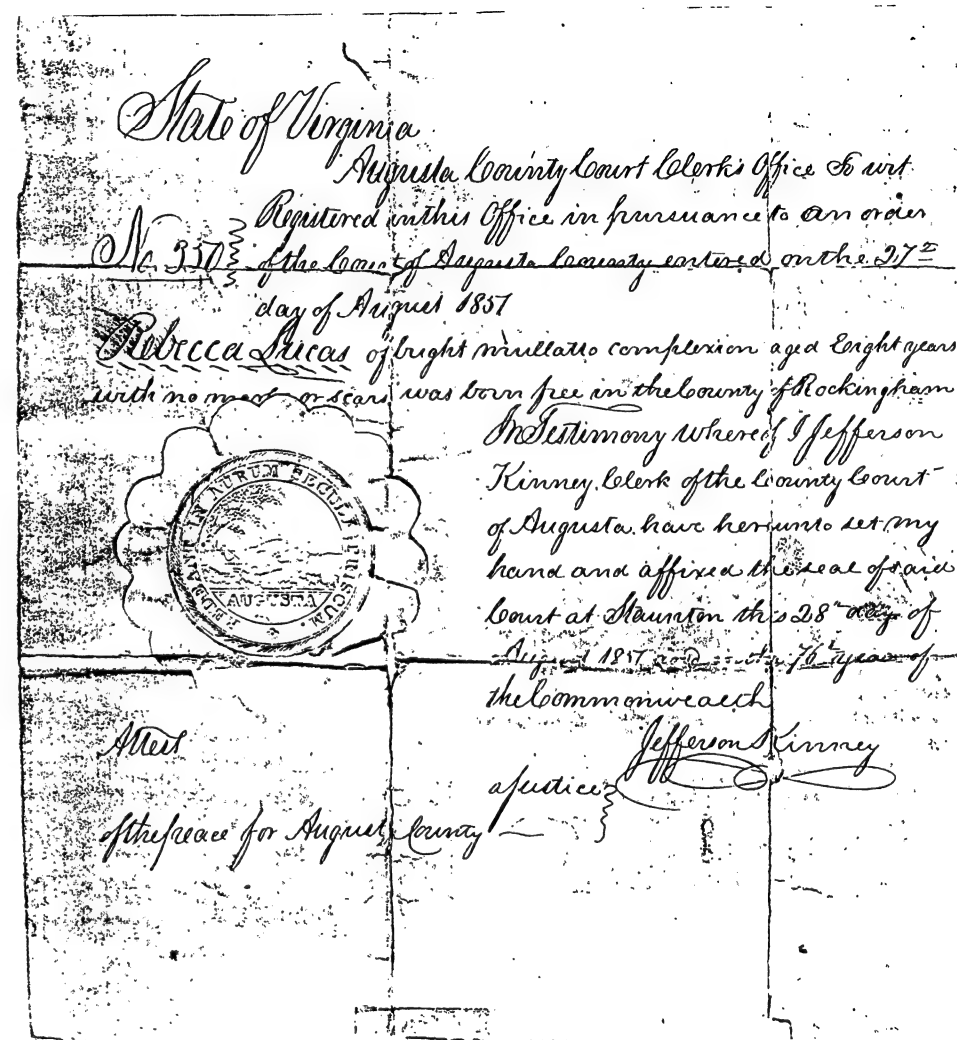 State of Virginia
Augusta County Court Clerk's Office To wit
Registered in this Office in pursuance to an order
No. 350 of the Court of Augusta County entered on the 27th
day of August 1851
Rebecca Lucas of bright mullatto complexion aged Eight years
with no mark or scars was born free in the County of Rockingham
In Testimony whereof I Jefferson
Kinney, Clerk of the County Court
of Augusta have hereunto set my
hand and affixed the seal of said
Court at Staunton this 28th day of
August 1851 and in the 76th year of
the Commonwealth
AUGUSTA
Attest
Jefferson Kinney
a justice
of the peace for August County